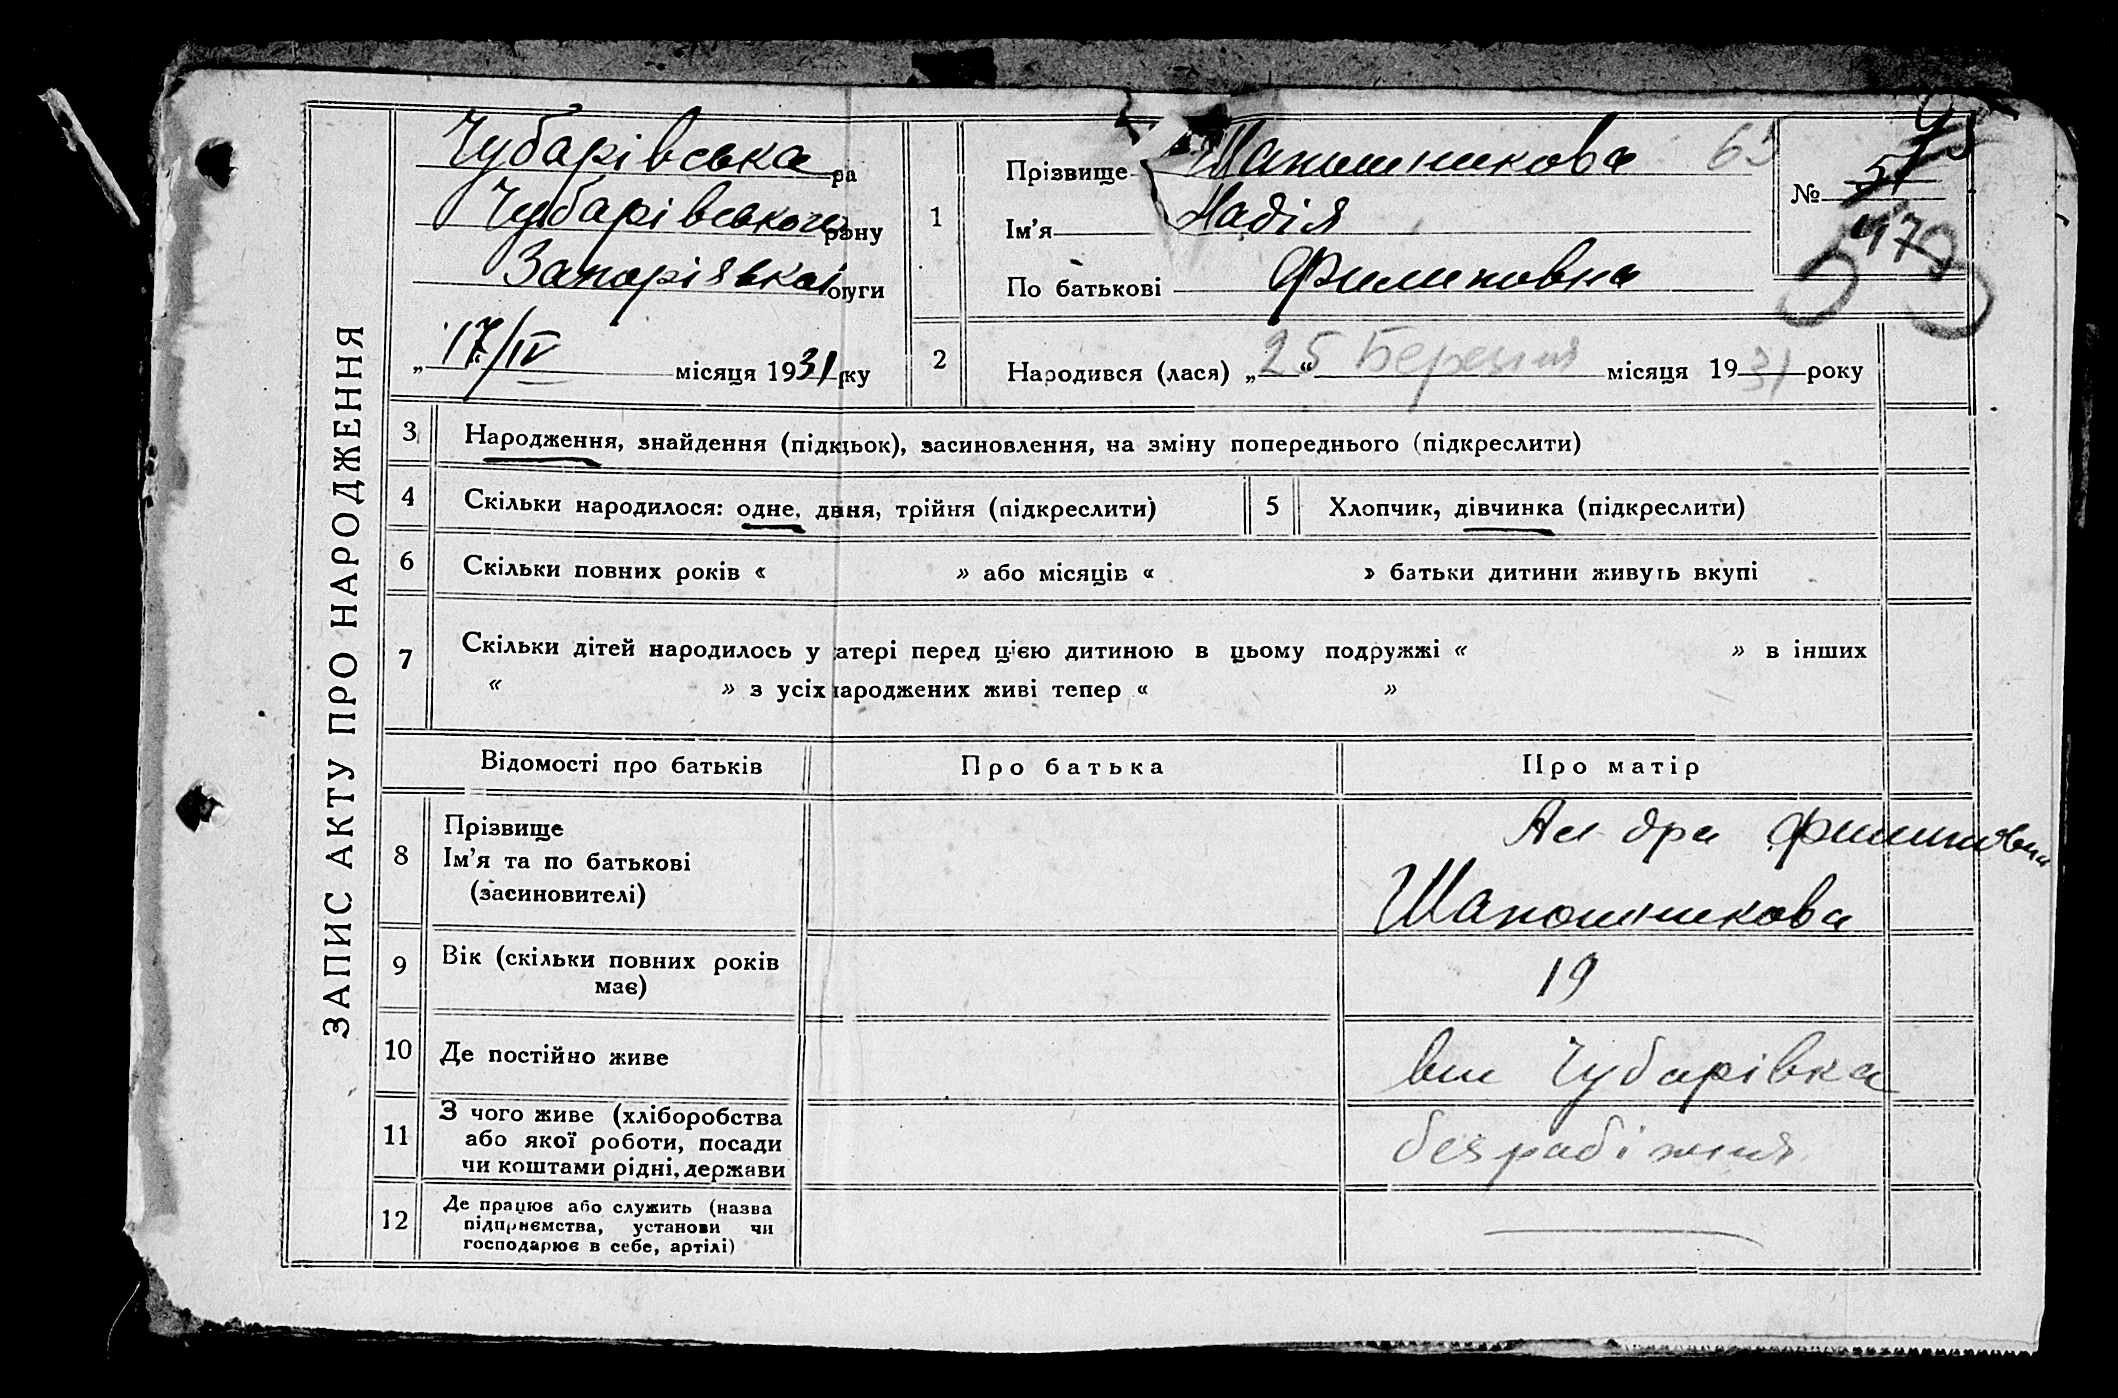 ЗАПИС АКТУ ПРО НАРОДЖЕННЯ
Чубарівська ра
Чубарівського рону
Запорізької оруги
„17/IV місяця 1931 рку
1
Прізвище Шапошникова 65
Ім’я Надія
По батькові Филиповна
№ 51
2
Народився (лася) „25“ Березня місяця 1931 року
3 Народження, знайдення (підкідьок), засиновлення, на зміну попереднього (підкреслити)
4 Скільки народилося: одне, двня, трійня (підкреслити)
5 Хлопчик, дівчинка (підкреслити)
6 Скільки повних років « » або місяців « » батьки дитини живуть вкупі
7 Скільки дітей народилось у атері перед цією дитиною в цьому подружжі « » в інших
« » з усіх народжених живі тепер « »
Відомості про батьків Про батька Про матір
8 Прізвище
Ім’я та по батькові
(засиновителі)
Ал-дра Филиповна
Шапошникова
9 Вік (скільки повних років
має)
19
10 Де постійно живе
Чубарівка
11 З чого живе (хліборобства
або якої роботи, посади
чи коштами рідні, держави
безробітня
12 Де працює або служить (назва
підприємства, установи чи
господарює в себе, артілі)